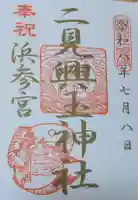 令和年七月八日
二見興玉神社
奉祝
浜参宮